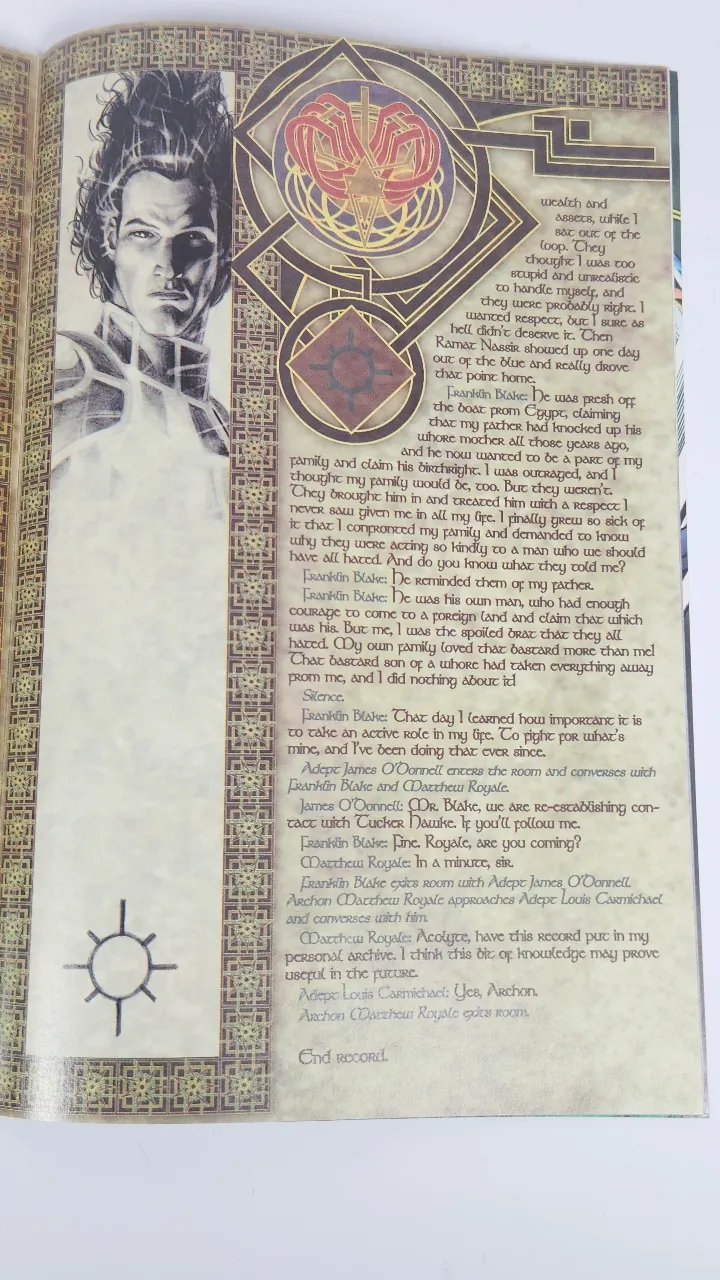 wealth and
assets, while I
sat out of the
loop. They
thought I was too
stupid and unrealistic
to handle myself, and
they were probably right. I
wanted respect, but I sure as
hell didn't deserve it. Then
Ramat Nassir showed up one day
out of the blue and really drove
that point home.
Franklin Blake: He was fresh off
the boat from Egypt, claiming
that my father had knocked up his
whore mother all those years ago,
and he now wanted to be a part of my
family and claim his birthright. I was outraged, and I
thought my family would be, too. But they weren't.
They brought him in and treated him with a respect I
never saw given me in all my life. I finally grew so sick of
it that I confronted my family and demanded to know
why they were acting so kindly to a man who we should
have all hated. And do you know what they told me?
Franklin Blake: He reminded them of my father.
Franklin Blake: He was his own man, who had enough
courage to come to a foreign land and claim that which
was his. But me, I was the spoiled brat that they all
hated. My own family loved that bastard more than me!
That bastard son of a whore had taken everything away
from me, and I did nothing about it!
Silence.
Franklin Blake: That day I learned how important it is
to take an active role in my life. To fight for what's
mine, and I've been doing that ever since.
Adept James O'Donnell enters the room and converses with
Franklin Blake and Matthew Royale.
James O'Donnell: Mr. Blake, we are re-establishing con-
tact with Tucker Hawke. If you'll follow me.
Franklin Blake: Fine. Royale, are you coming?
Matthew Royale: In a minute, sir.
Franklin Blake exits room with Adept James O'Donnell.
Archon Matthew Royale approaches Adept Louis Carmichael
and converses with him.
Matthew Royale: Acolyte, have this record put in my
personal archive. I think this bit of knowledge may prove
useful in the future.
Adept Louis Carmichael: Yes, Archon.
Archon Matthew Royale exits room.
End record.